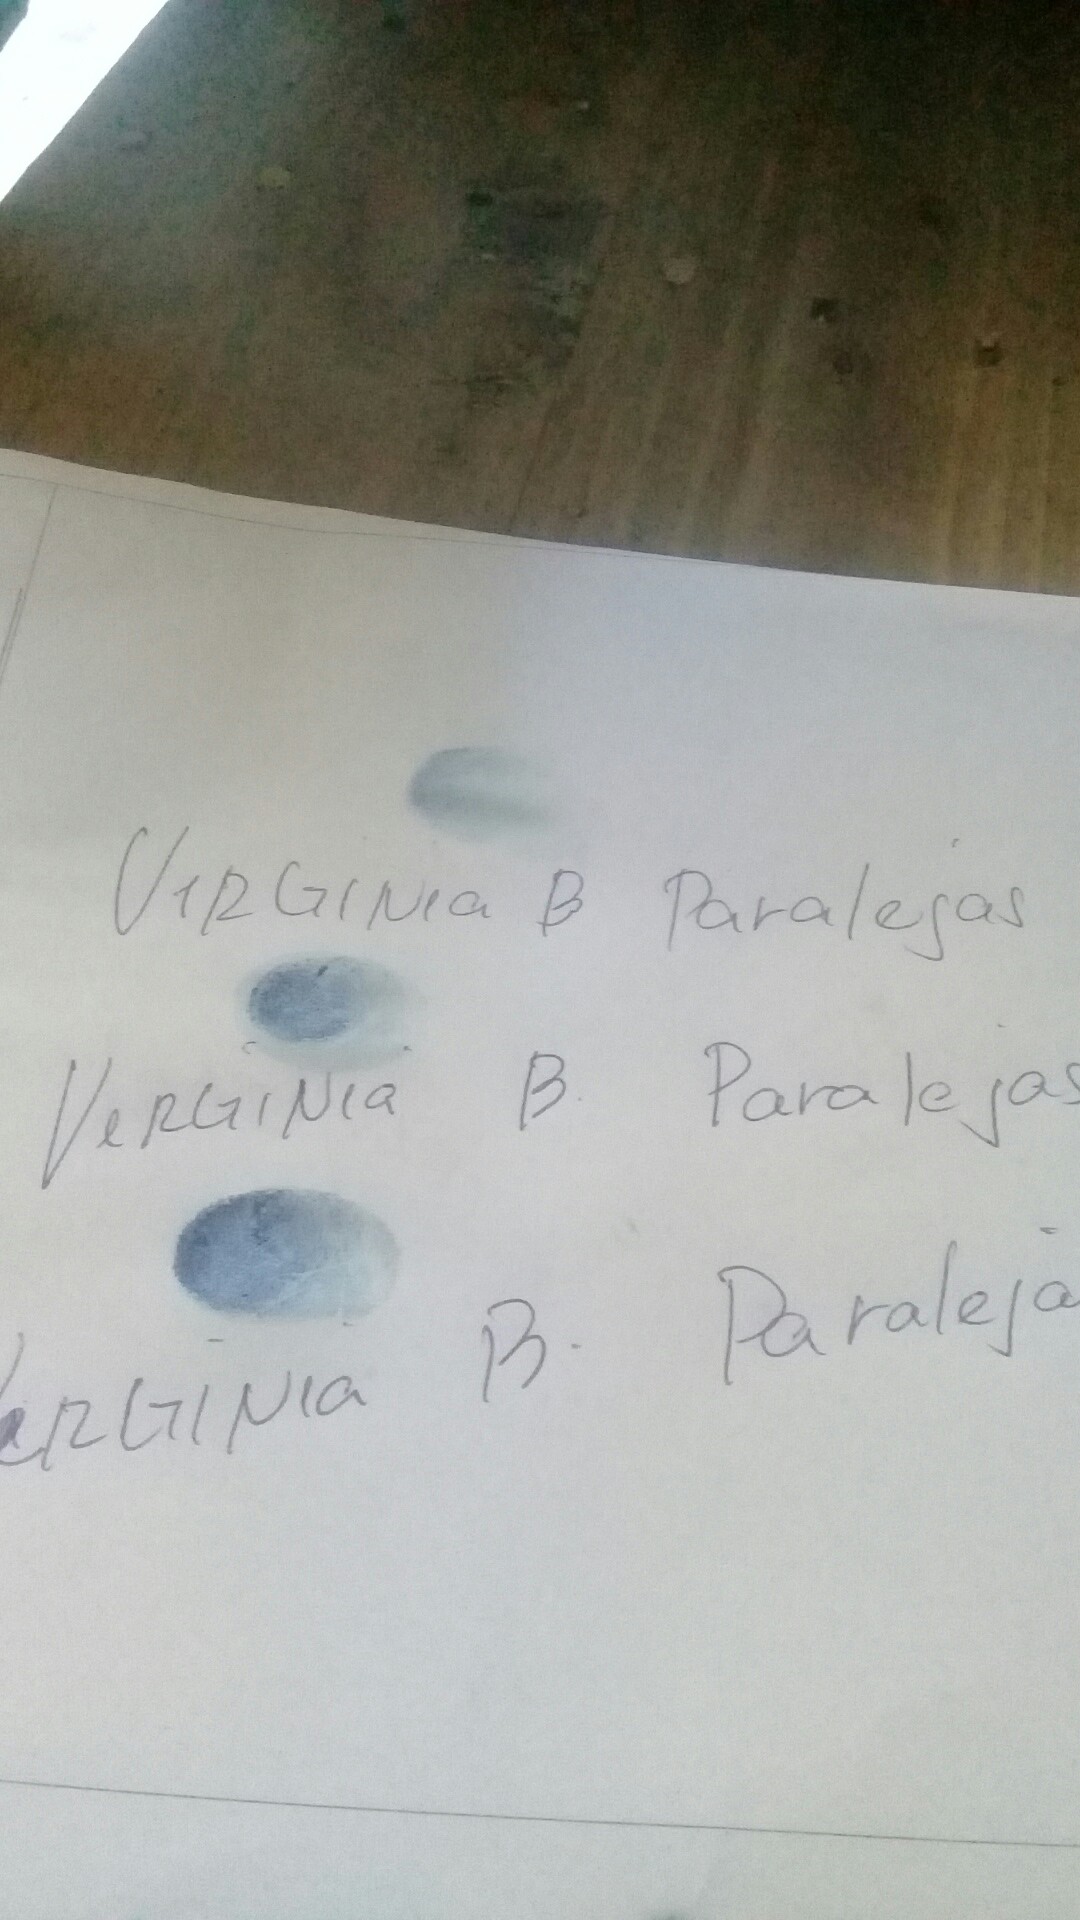 VIRGINIa B Paralejas
VeRGINIa B. Paralejas
VeRGINIa B. Paraleja